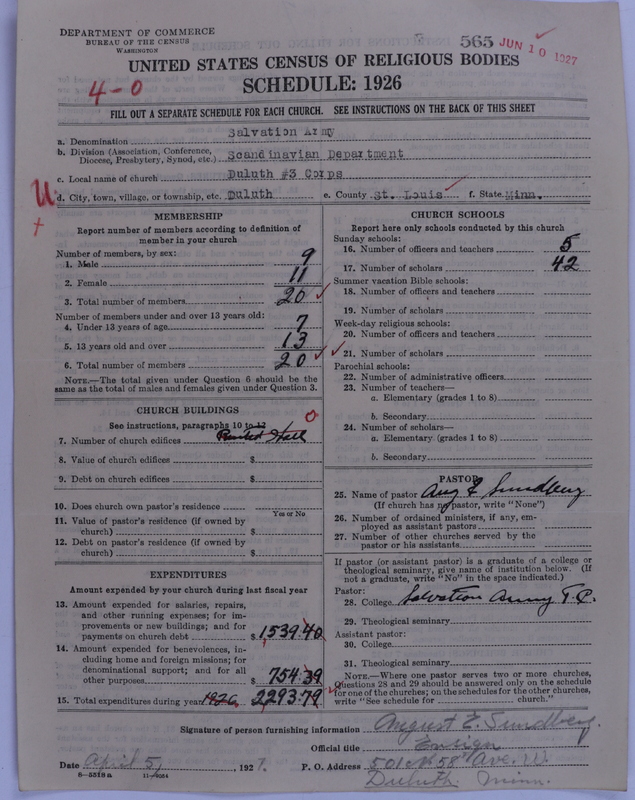 DEPARTMENT OF COMMERCE
BUREAU OF THE CENSUS
WASHINGTON
565 JUN 10 1927
UNITED STATES CENSUS OF RELIGIOUS BODIES
4-0
SCHEDULE: 1926
FILL OUT A SEPARATE SCHEDULE FOR EACH CHURCH. SEE INSTRUCTIONS ON THE BACK OF THIS SHEET
a. Denomination Salvation Army
b. Division (Association, Conference, Diocese, Presbytery, Synod, etc.) Scandinavian Department
c. Local name of church Duluth #3 Corps
U
d. City, town, village, or township, etc. Duluth e. County St. Louis f. State Minn.
MEMBERSHIP
Report number of members according to definition of
member in your church
Number of members, by sex:
1. Male 9
2. Female 11
3. Total number of members 20
Number of members under and over 13 years old:
4. Under 13 years of age 7
5. 13 years old and over 13
6. Total number of members 20
NOTE.—The total given under Question 6 should be the
same as the total of males and females given under Question 3.
CHURCH BUILDINGS
See instructions, paragraphs 10 to 12
7. Number of church edifices Rented Hall 0
8. Value of church edifices $
9. Debt on church edifices $
10. Does church own pastor's residence
Yes or No
11. Value of pastor's residence (if owned by
church) $
12. Debt on pastor's residence (if owned by
church) $
EXPENDITURES
Amount expended by your church during last fiscal year
13. Amount expended for salaries, repairs,
and other running expenses; for im-
provements or new buildings; and for
payments on church debt $ 1539.40
14. Amount expended for benevolences, in-
cluding home and foreign missions; for
denominational support; and for all
other purposes $ 754.39
15. Total expenditures during year 1926 2293.79
CHURCH SCHOOLS
Report here only schools conducted by this church
Sunday schools:
16. Number of officers and teachers 5
17. Number of scholars 42
Summer vacation Bible schools:
18. Number of officers and teachers
19. Number of scholars
Week-day religious schools:
20. Number of officers and teachers
21. Number of scholars
Parochial schools:
22. Number of administrative officers
23. Number of teachers—
a. Elementary (grades 1 to 8)
b. Secondary
24. Number of scholars—
a. Elementary (grades 1 to 8)
b. Secondary
PASTOR
25. Name of pastor Aug E Sundberg
(If church has no pastor, write "None")
26. Number of ordained ministers, if any, em-
ployed as assistant pastors
27. Number of other churches served by the
pastor or his assistants
If pastor (or assistant pastor) is a graduate of a college or
theological seminary, give name of institution below. (If
not a graduate, write "No" in the space indicated.)
Pastor:
28. College Salvation Army T.C.
29. Theological seminary
Assistant pastor:
30. College
31. Theological seminary
NOTE.—Where one pastor serves two or more churches,
Questions 28 and 29 should be answered only on the schedule
for one of the churches; on the schedules for the other churches,
write "See schedule for church."
Signature of person furnishing information August E. Sundberg
Official title Ensign
Date April 5, 1927. P. O. Address 501 N 58 Ave. W.
8—5518a 11—9054 Duluth Minn.